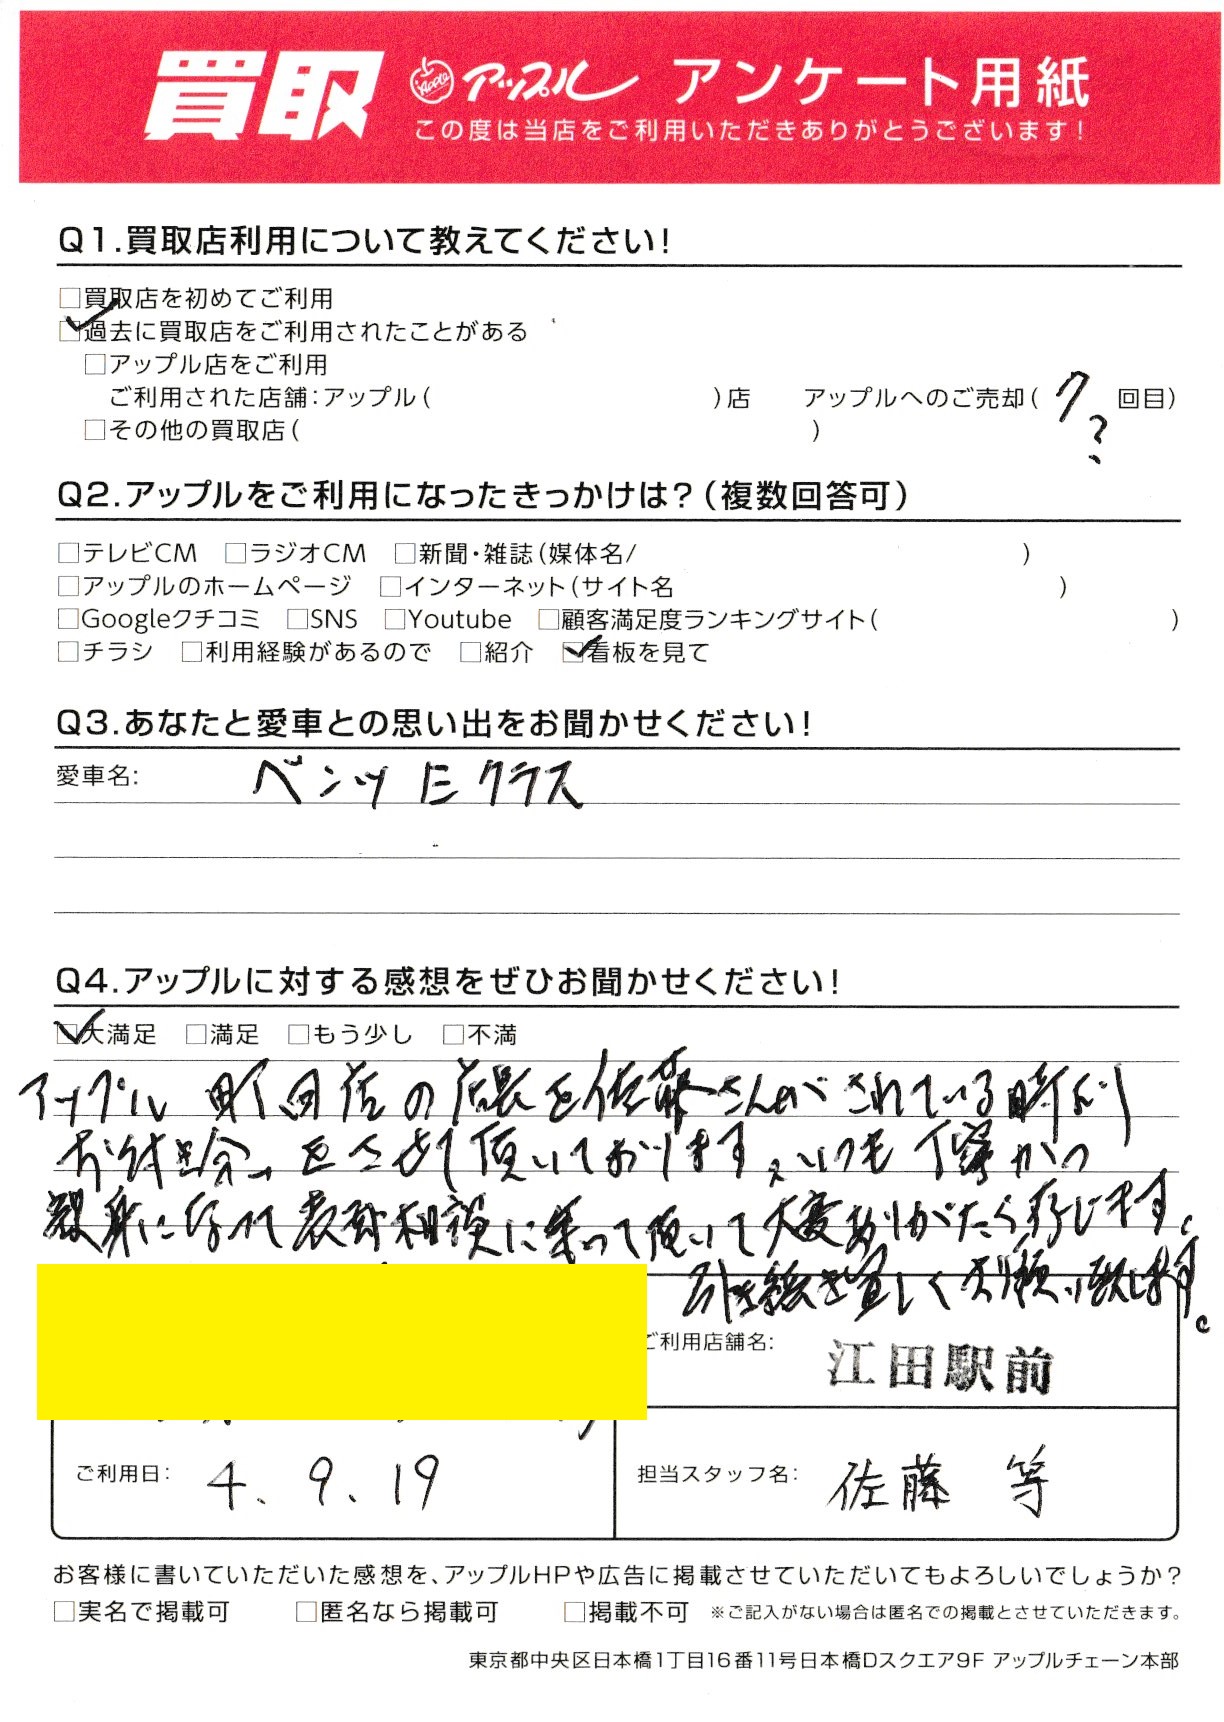 買取 Apple アップル アンケート用紙
この度は当店をご利用いただきありがとうございます!
Q1.買取店利用について教えてください!
□買取店を初めてご利用
☑過去に買取店をご利用されたことがある
□アップル店をご利用
ご利用された店舗:アップル( )店 アップルへのご売却( 7? 回目)
□その他の買取店( )
Q2.アップルをご利用になったきっかけは?(複数回答可)
□テレビCM □ラジオCM □新聞・雑誌(媒体名/ )
□アップルのホームページ □インターネット(サイト名 )
□Googleクチコミ □SNS □Youtube □顧客満足度ランキングサイト( )
□チラシ □利用経験があるので □紹介 ☑看板を見て
Q3.あなたと愛車との思い出をお聞かせください!
愛車名: ベンツ Eクラス
Q4.アップルに対する感想をぜひお聞かせください!
☑大満足 □満足 □もう少し □不満
アップル 町田店の店長を佐藤さんがされている時より
お付き合いをさせて頂いております。いつも丁寧かつ
親身になって 相談に乗って頂いて大変ありがたく存じます。
引き続き宜しくお願い致します。
ご利用店舗名: 江田駅前
ご利用日: 4.9.19 担当スタッフ名: 佐藤 等
お客様に書いていただいた感想を、アップルHPや広告に掲載させていただいてもよろしいでしょうか?
□実名で掲載可 □匿名なら掲載可 □掲載不可 ※ご記入がない場合は匿名での掲載とさせていただきます。
東京都中央区日本橋1丁目16番11号日本橋Dスクエア9F アップルチェーン本部